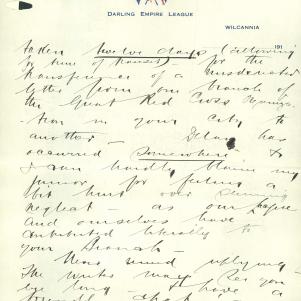 DARLING EMPIRE LEAGUE
WILCANNIA
taken twelve days (allowing 191
for time of transit) - for the
transference of a misdirected
letter from one branch of
the Great Red Cross Organis-
ation in your City to
another - Delay has
occurred somewhere &
I can hardly blame my
junior for feeling a
bit hurt over seeming
neglect as our
and ourselves have
contributed liberally to
your Branch -
Never mind replying -
you
long - have a